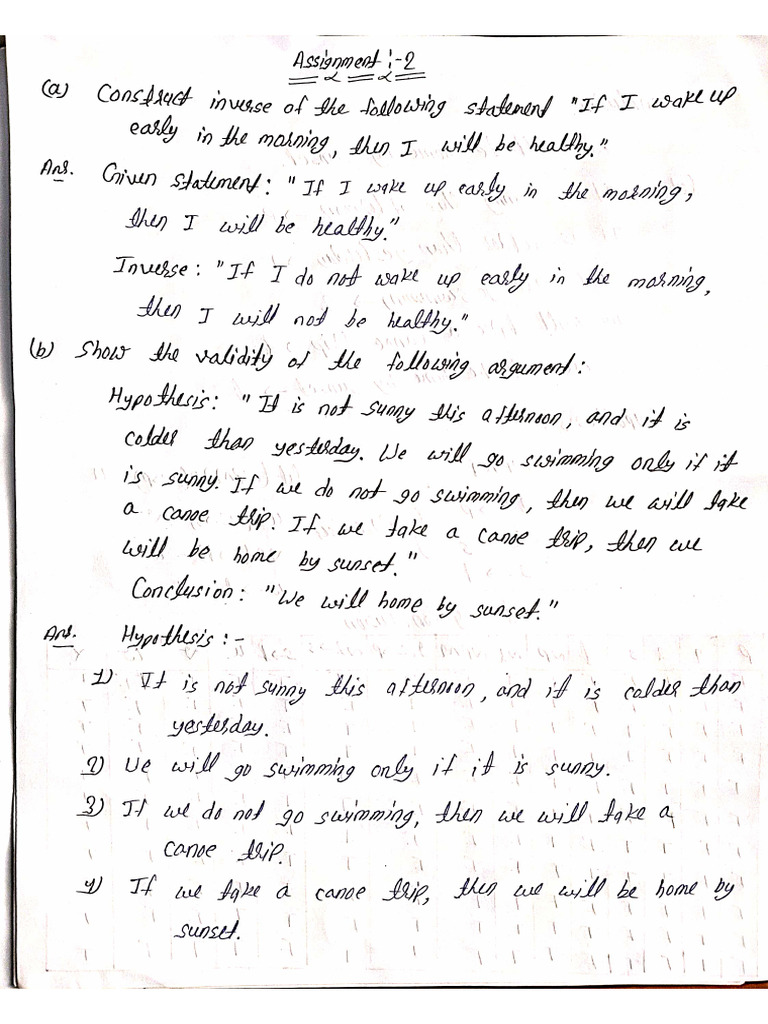 Assignment :- 2
(a) Construct inverse of the following statement "If I wake up
early in the morning, then I will be healthy."
Ans. Given statement: "If I wake up early in the morning,
then I will be healthy."
Inverse: "If I do not wake up early in the morning,
then I will not be healthy."
(b) Show the validity of the following argument:
Hypothesis: "It is not sunny this afternoon, and it is
colder than yesterday. We will go swimming only if it
is sunny. If we do not go swimming, then we will take
a canoe trip. If we take a canoe trip, then we
will be home by sunset."
Conclusion: "We will home by sunset."
Ans. Hypothesis :-
1) It is not sunny this afternoon, and it is colder than
yesterday.
2) We will go swimming only if it is sunny.
3) If we do not go swimming, then we will take a
canoe trip.
4) If we take a canoe trip, then we will be home by
sunset.